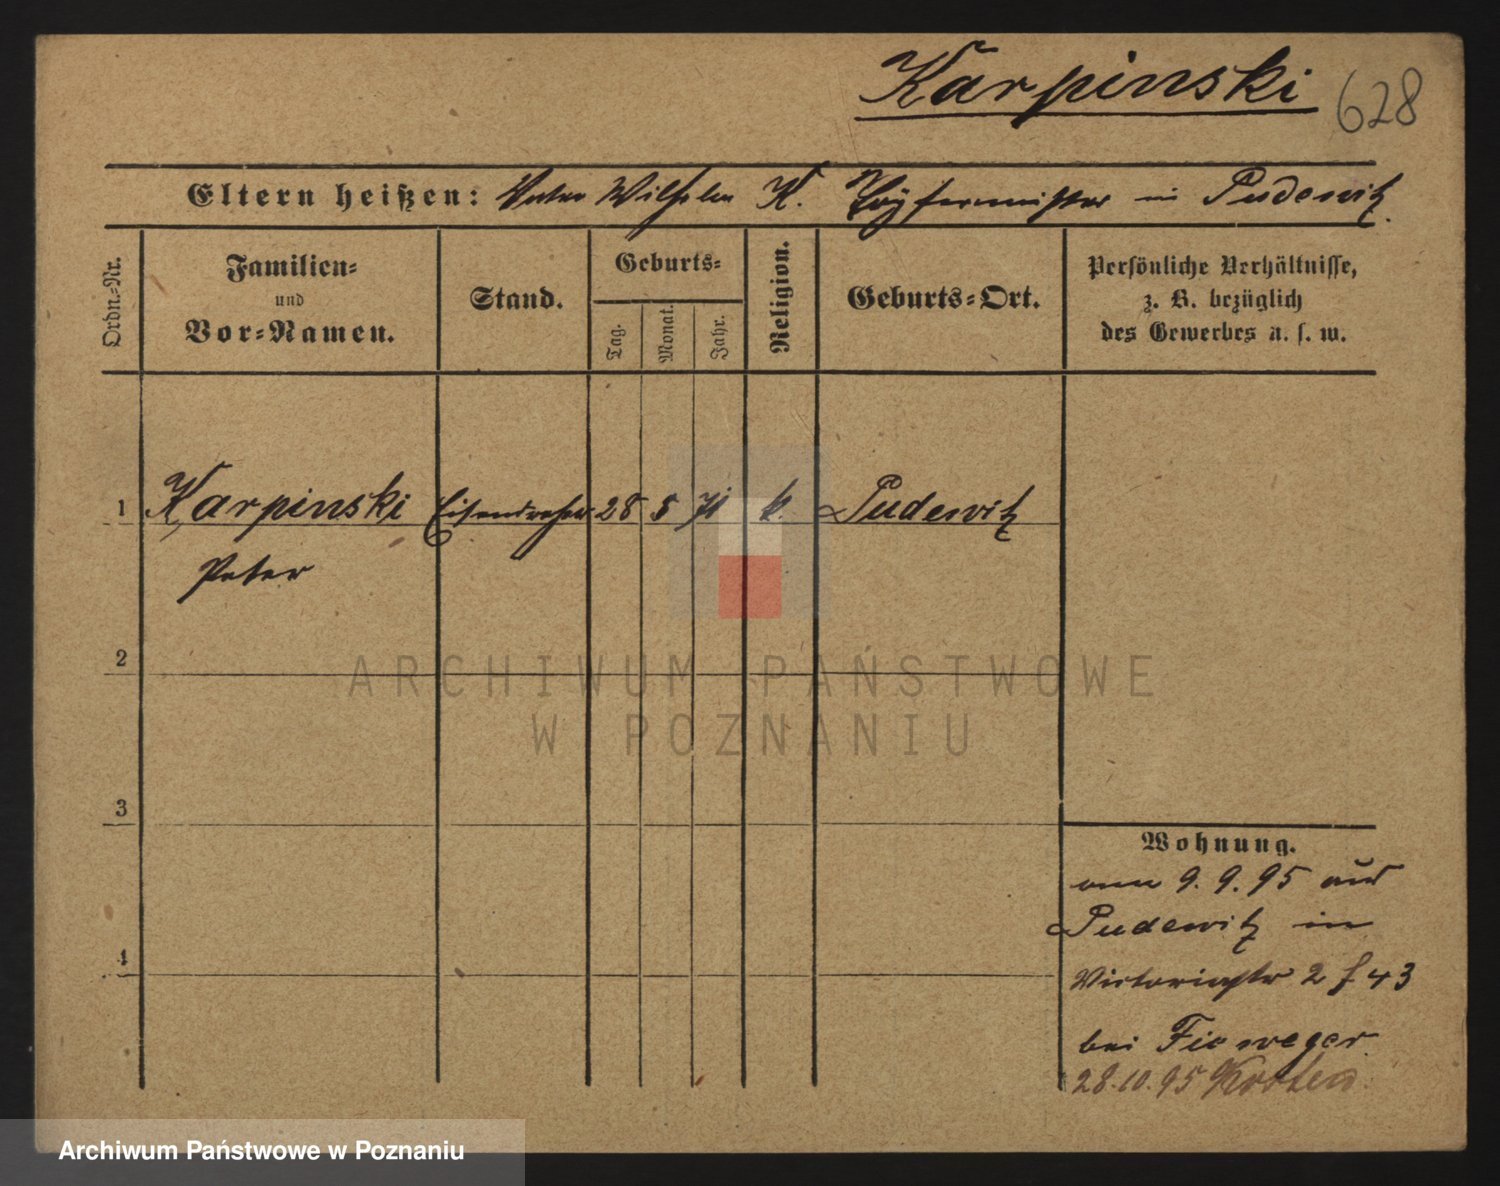 Karpinski 628
Eltern heißen: Vater Wilhelm K. Töpfermeister in Pudewitz
Ordn.-Nr.
Familien-
und
Vor-Namen.
Stand.
Geburts-
Tag.
Monat.
Jahr.
Religion.
Geburts-Ort.
Persönliche Verhältnisse,
z. B. bezüglich
des Gewerbes u. s. w.
1 Karpinski Eisendreher 28 5 71 k. Pudewitz
Peter
2
ARCHIWUM PAŃSTWOWE
W POZNANIU
3
Wohnung.
am 9.9.95 aus
Pudewitz in
4
Victoriastr 2 f 43
bei Fieweger
28.10.95
Archiwum Państwowe w Poznaniu